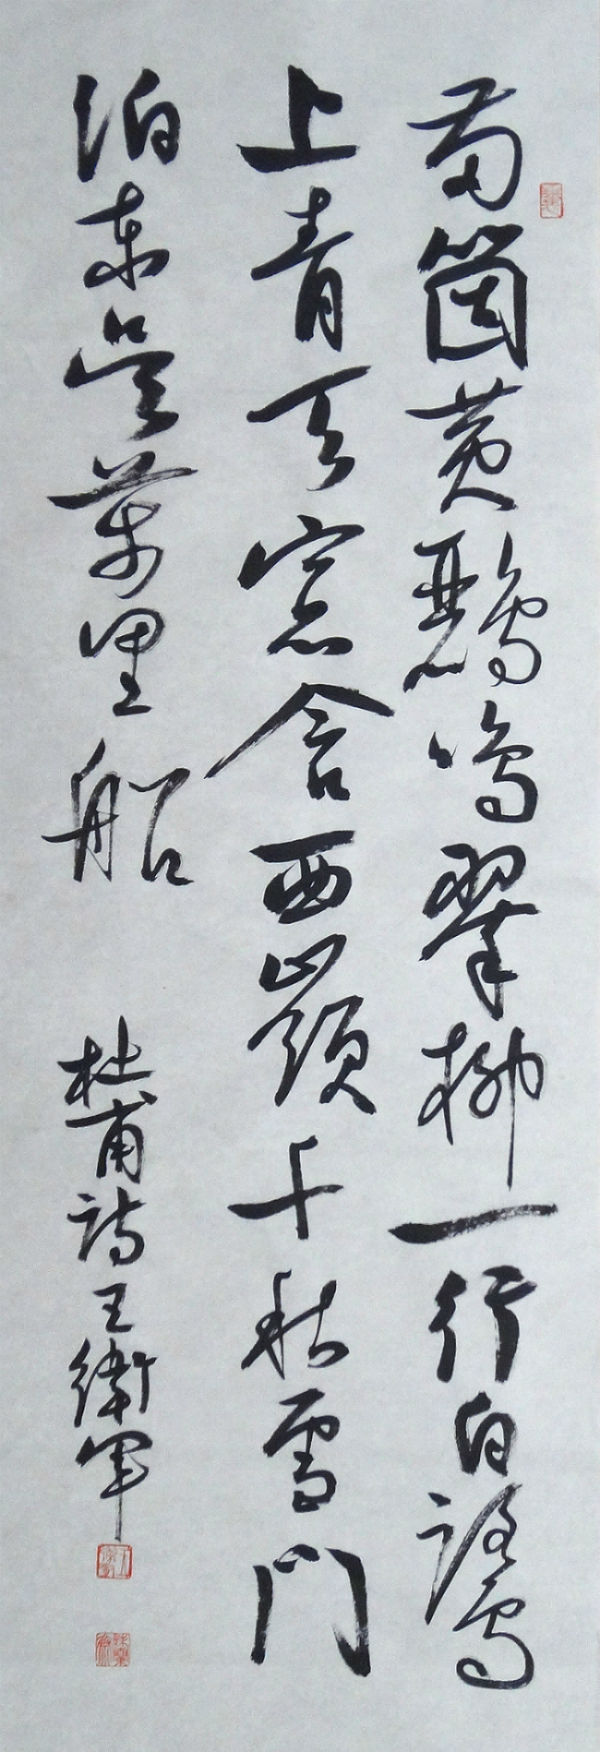 兩箇黃鸝鳴翠柳一行白鷺
上青天窓含西嶺千秋雪門
泊東吳萬里船
杜甫詩王衛軍